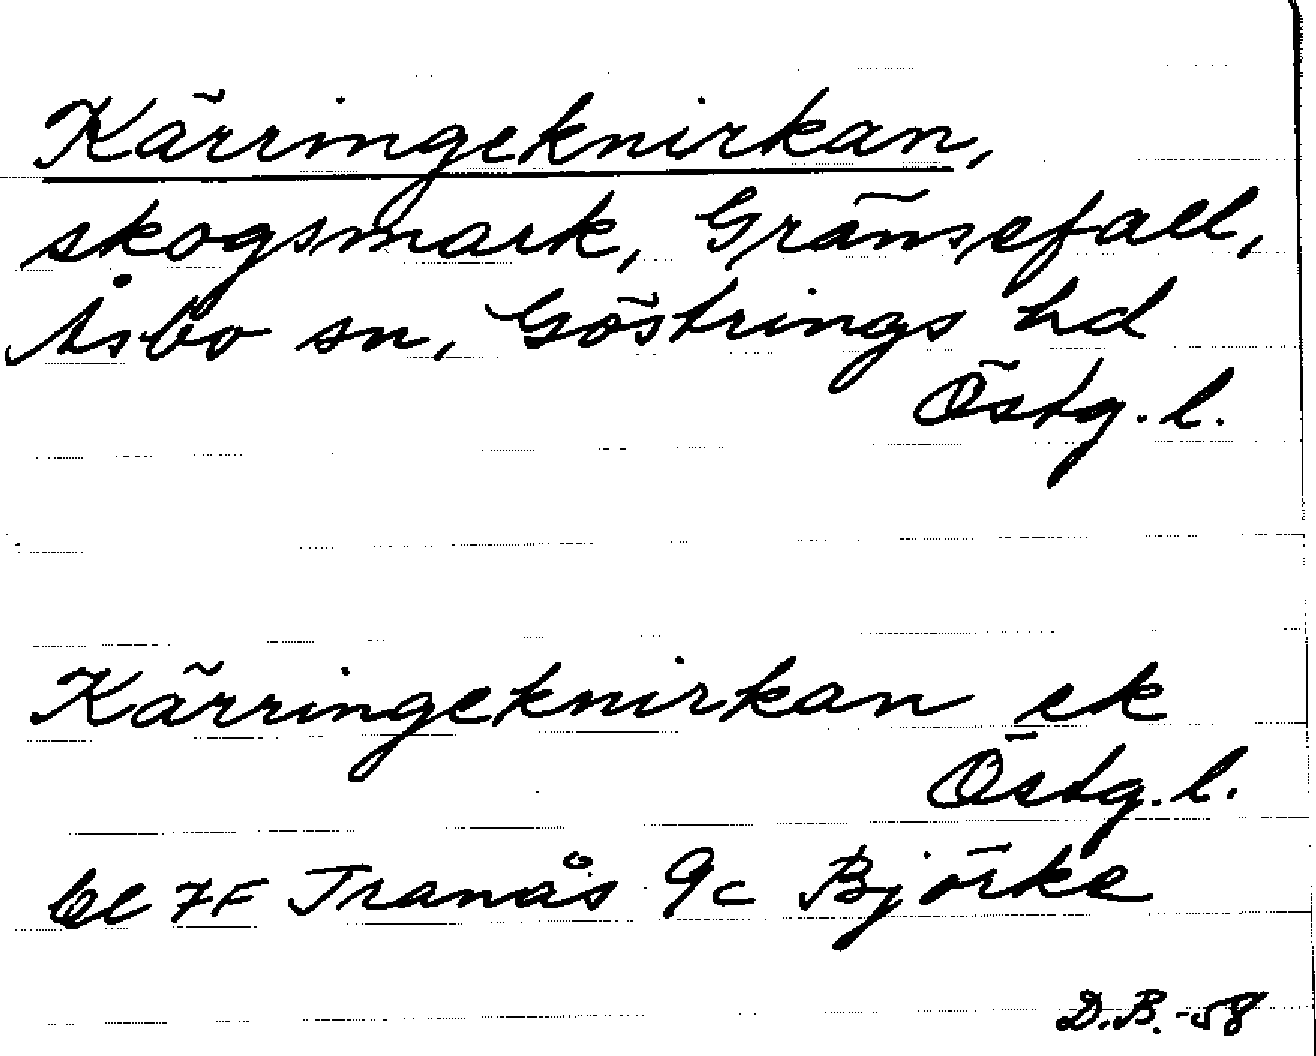 Kärringeknirkan,
skogsmark, Gränsefall,
Åsbo sn, Göstrings hd
Östg. l.
Kärringeknirkan ek
Östg. l.
bl 7F Tranås 9c Björke
D.B. -58